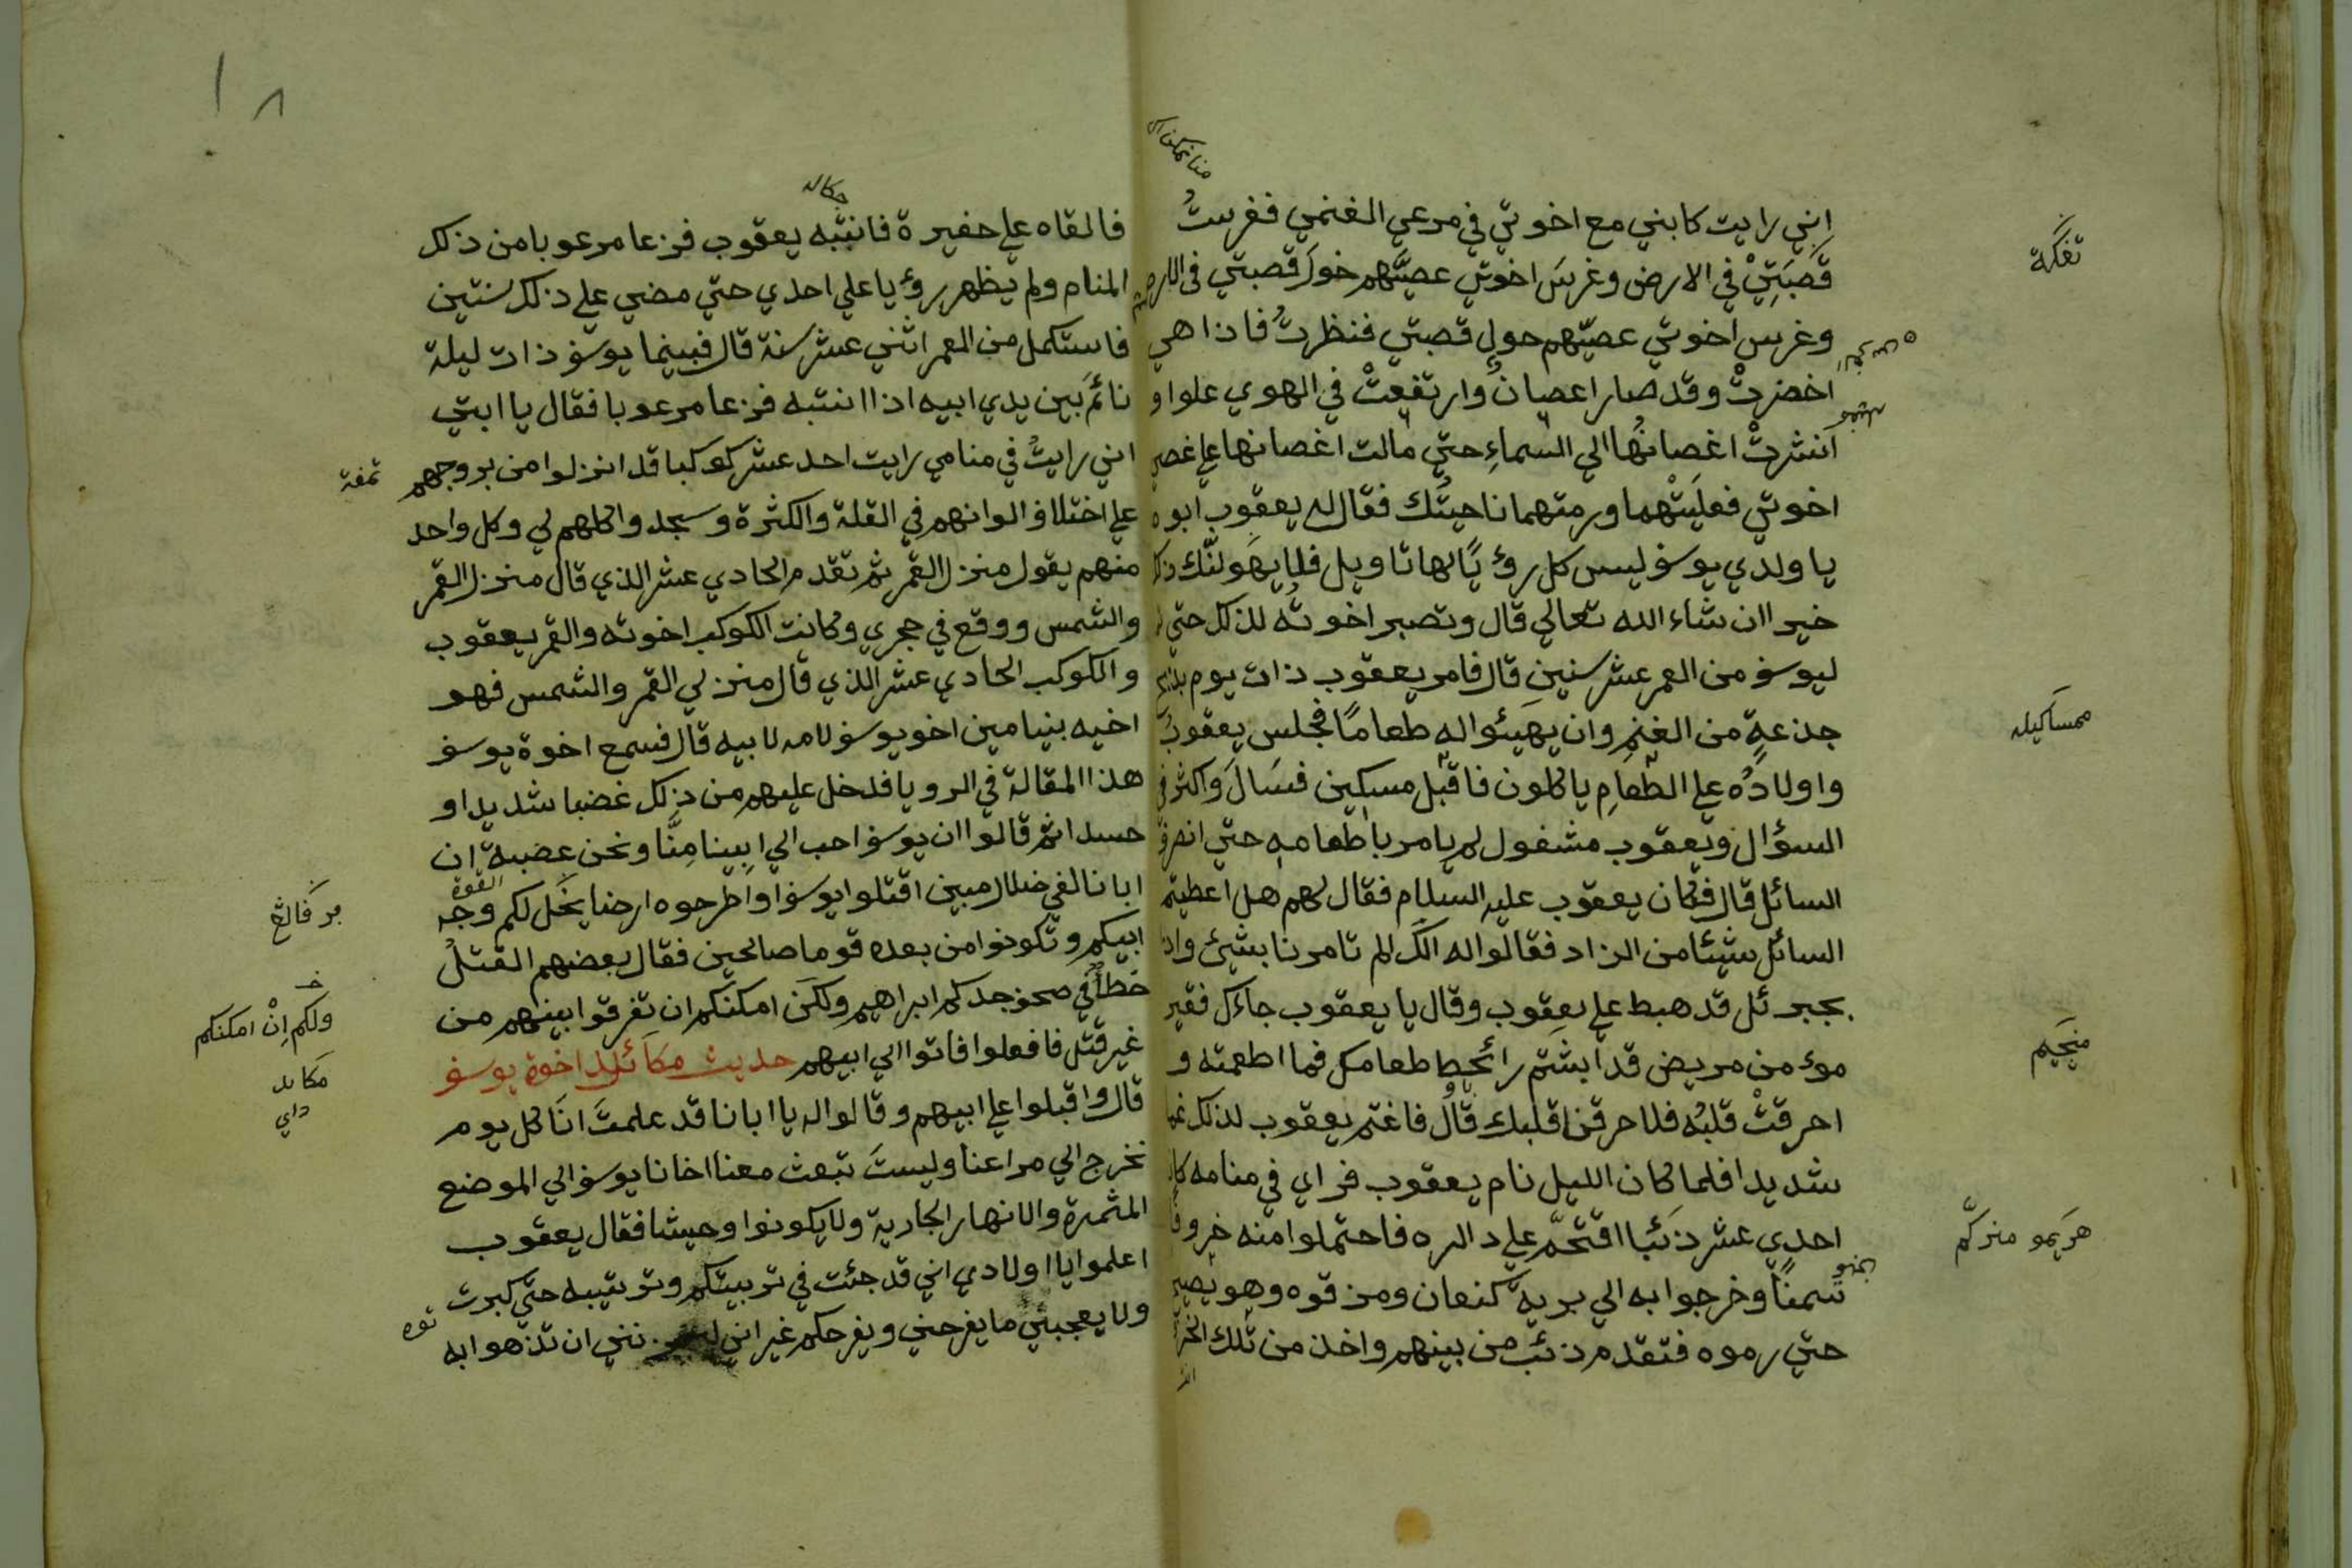 اني رايت كابني مع اخوتي في مرعي الغنمي فغرستُ
قَصَبَتِيْ في الارض وغرسَ اخوتي عصيَّهم حول قصبتي في الارض
وغرس اخوتي عصيّهم حول قصبتي فنظرتُ فاذا هي
اخضرتْ وقد صار اعصان وارتفعتْ في الهوي علوا و
انشرتْ اغصانُها الي السماءِ حتي مالت اغصانها علي غصن
اخوتي فعليَتْهما ورمتهما ناحيتُك فقال له يعقوب ابوه
يا ولدي يوسف ليس كل رؤيًا لها تاويل فلا يهَولنّك
خيرا ان شاء الله تعالي قال وتصبر اخوتُه لذلك حتي
ليوسف من العمر عشر سنين قال فامر يعقوب ذات يوم
جذعةٍ من الغنمِ وان يهَيئوا لهِ طعامًا فجلس يعقوبُ
واولادُه علي الطعامِ ياكلون فاقبل مسكين فسَالَ واكثر في
السؤال ويعقوب مشغول لم يامر باطعامهِ حتي انصرف
السائل قال فكان يعقوب عليه السلام فقال لهم هل اعطيتم
السائل شيئا من الزاد فقالوا له انك لم تامرنا بشيئ واذا
بجبرئل قد هبط علي يعقوب وقال يا يعقوب جاءك فقير
موءمن مريض قد ابشَتم رائحط طعامك فما اطعمته و
احرقتْ قلبُه فلا حرقن قلبك قال فاغتم يعقوب لذلك غما
شديدا فلما كان الليل نام يعقوب فراي في منامه كان
احدي عشر ذئبا اقتحَّم علي داره فاحتملوا منه خروفا
سَمنًا وخرجوا به الي بريةَ كنعان ومزقوه وهو يصيح
حتي رموه فتقدم ذئب من بينهم واخذ من تلك
تفكَّة
ممسَاكيله
منِجَيم
هَرَيمو منزكَّم
فالقاه علي حفيرة فانتبه يعقوب فزعا مرعوبا من ذلك
المنام ولم يظهر رؤيا علي احدي حتي مضي علي ذلك سنتين
فاستكمل من العمر اثني عشر سنة قال فبينما يوسف ذات ليلة
نائمَ بَين يدي ابيه اذا انتبه فزعا مرعوبا فقال يا ابتي
اني رايتُ في منامي رايت احد عشر كوكبا قد انزلوا من بروجهم
علي اختلاف الوانهم في القلة والكثرة وسجدوا كلهم لي وكل واحد
منهم يقول منزل القمر ثم تقدم الحادي عشر الذي قال منزل القمر
والشمس ووقع في حجري وكانت الكوكب اخوته والقمر يعقوب
والكوكب الحادي عشر الذي قال منزلي القمر والشمس فهو
اخيه بنيامين اخو يوسف لامه لابيه قال فسمع اخوة يوسف
هذا المقالة في الرويا فدخل عليهم من ذلك غضبا شديدا و
حسدا ثم قالوا ان يوسف احب الي ابينا مِنَّا ونحن عصبة ان
ابانا لفي ضلال مبين اقتلوا يوسف او اطرحوه ارضا يخَل لكم وجه
ابيكم وتكونوا من بعده قوما صالحين فقال بعضهم القتلُ
خطأ في صحف جدكم ابراهيم ولكَن امكنكم ان تفرقوا بينهم من
غير قتل فافعلوا فاتوا الي ابيهم حديث مكَائد اخوة يوسف
قال واقبلوا علي ابيهم وقالوا له يا ابانا قد علمتَ انَا كل يوم
نخرج الي مراعنا وليستَ تبعث معنا اخانا يوسف الي الموضع
المثمرة والانهار الجارية ولا يكونوا وحيشا فقال يعقوب
اعلموا يا اولادي اني قد جئت في تربيتكم وترتيبه حتي كبرت
ولا يعجبني ما يفرحني ويفرحكم غير اني نني ان تذهوا به
تمغة
القوة
ولكم اِنْ امكنكم
مكَايد
داي
توه
١٨